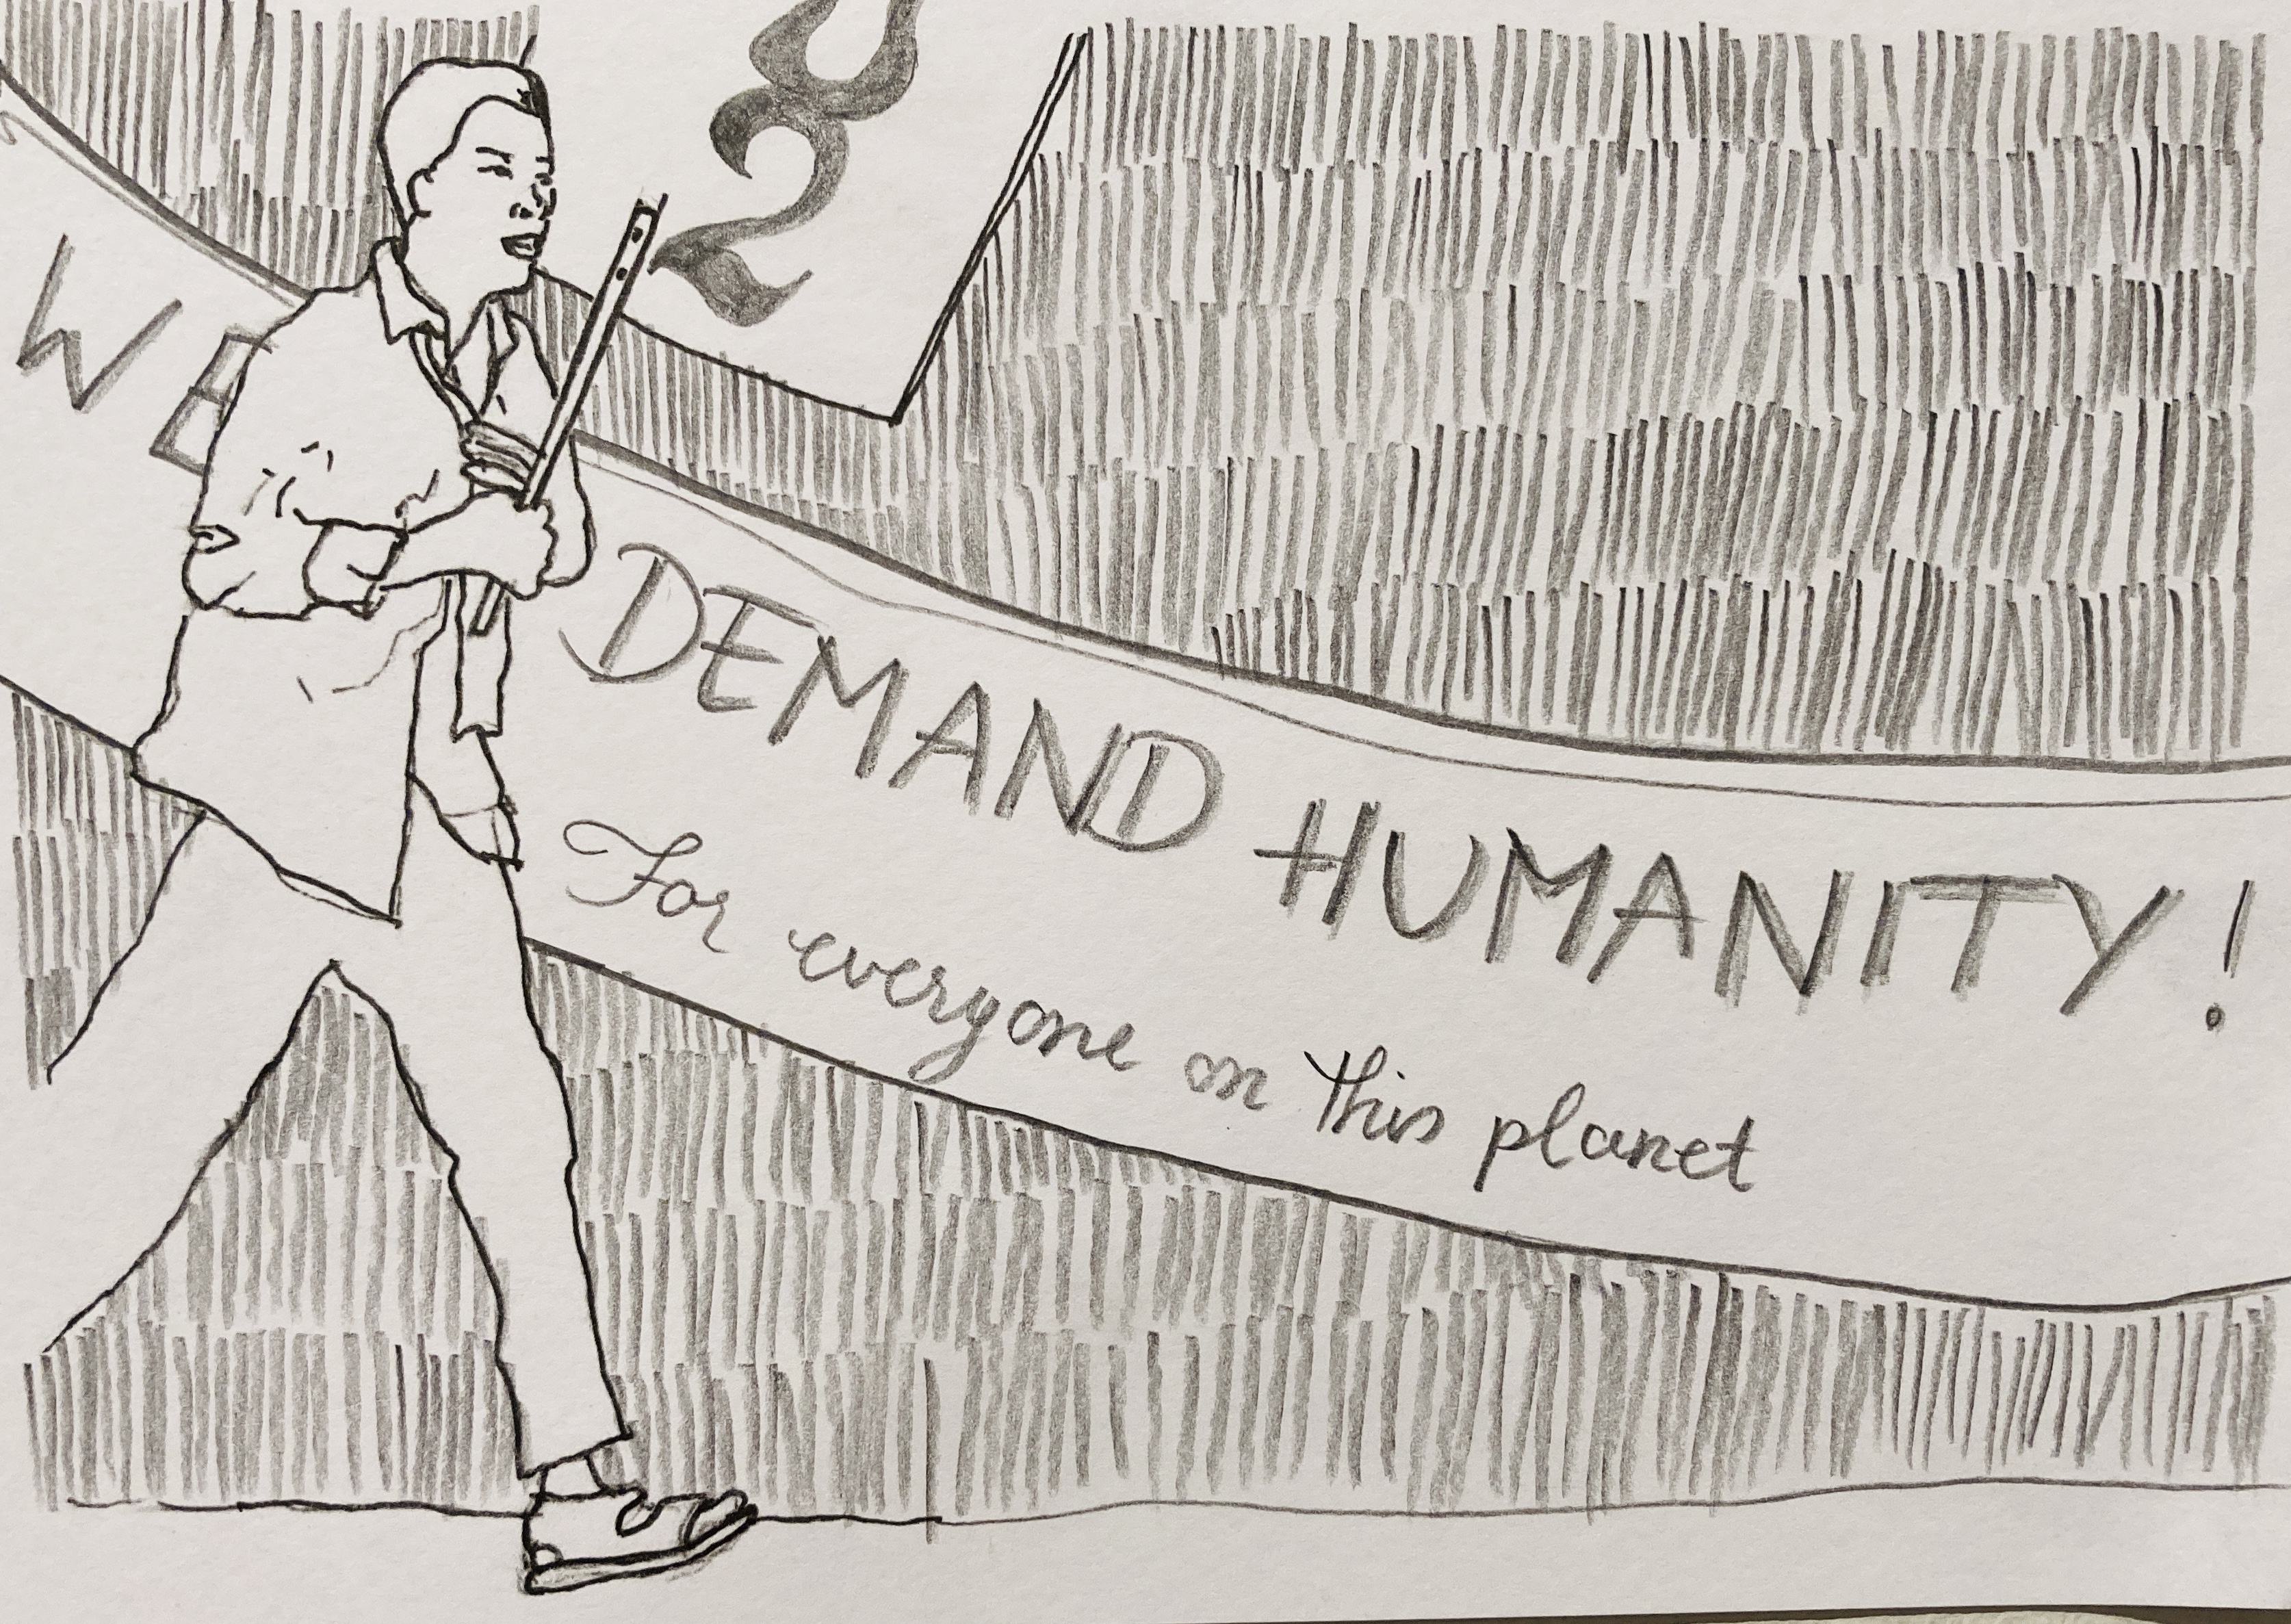 WE DEMAND HUMANITY!
For everyone on this planet